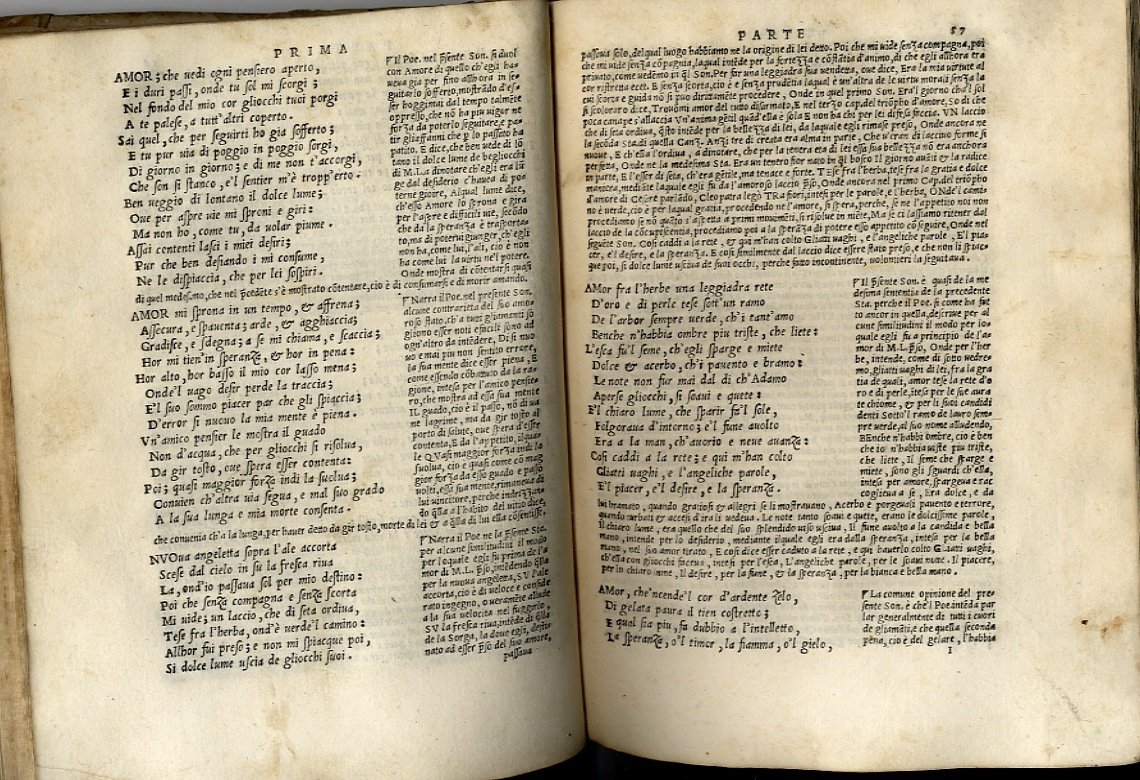 PRIMA
AMOR; che uedi ogni pensiero aperto,
E i duri passi, onde tu sol mi scorgi;
Nel fondo del mio cor gliocchi tuoi porgi
A te palese, a tutt'altri coperto.
Sai quel, che per seguirti ho già sofferto;
E tu pur uia di poggio in poggio sorgi,
Di giorno in giorno; e di me non t'accorgi,
Che son si stanco, e'l sentier m'è tropp'erto.
Ben ueggio di lontano il dolce lume;
Oue per aspre uie mi sproni e giri:
Ma non ho, come tu, da uolar piume.
Assai contenti lasci i miei desiri;
Pur che ben desiando i mi consume,
Ne le dispiaccia, che per lei sospiri.
Il Poe. nel p̃sente Son. si duol
con Amore di quello ch'egli ha-
ueua gia per fino allhora in se-
guitarlo sofferto, mostrãdo d'es-
ser hoggimai dal tempo talmẽte
oppresso, che nõ ha piu uigor ne
forza da poterlo seguitare, e pa-
tir gliaffanni che p lo passato ha
patito. E dice, che ben uede di lõ
tano il dolce lume de begliocchi
di M.L. a dinotare ch'egli era lũ
ge dal desiderio c'haueua di po-
terne gioire, Alqual lume dice,
ch'esso Amore lo sprona e gira
per l'aspre e difficili uie, secõdo
che da la speranza è trasporta-
to, ma di poterui giunger, ch'egli
non ha, come lui, l'ali, cio è non
ha come lui la uirtu ne'l potere.
Onde mostra di cõtentarsi quasi
di quel medesimo, che nel p̃cedẽte s'è mostrato cõtentare, cio è di consumarsi e di morir amando.
AMOR mi sprona in un tempo, & affrena;
Assecura, e spauenta; arde, & agghiaccia;
Gradisce, e sdegna; a se mi chiama, e scaccia;
Hor mi tien'in speranza, & hor in pena:
Hor alto, hor basso il mio cor lasso mena;
Onde'l uago desir perde la traccia;
E'l suo sommo piacer par che gli spiaccia;
D'error si nuouo la mia mente è piena.
Vn'amico pensier le mostra il guado
Non d'acqua, che per gliocchi si risolua,
Da gir tosto, oue spera esser contenta:
Poi; quasi maggior forza indi la suolua;
Conuien ch'altra uia segua, e mal suo grado
A la sua lunga e mia morte consenta.
Narra il Poe. nel presente Son.
alcune contrarieta del suo amo-
roso stato, ch'a tutti gliamanti so
gliono esser noti e facili sono ad
ogn'altro da intẽdere, Di si nuo
uo e mai piu non sentito errore,
la sua mente dice esser piena, E
come essendo cõbattuto da la ra-
gione, intesa per l'amico pensie-
ro, che mostra ad essa sua mente
IL guado, cio è il passo, nõ di ua
ne lagrime, ma da gir tosto al
porto di salute, oue spera d'esser
contenta, E da l'appetito, ilqua-
le QVasi maggior forza indi la
suolua, cio è quasi come cõ mag
gior forza da esso guado e passo
volti, essa sua mente, rimaneua da
lui uincitore, perche indrizzan-
dola a l'habito del uitio dice,
che conuenia ch'a la lunga, per hauer detto da gir tosto, morte di lei & a q̃lla di lui ella cõsentisse.
NVOua angeletta sopra l'ale accorta
Scese dal cielo in su la fresca riua
La, ond'io passaua sol per mio destino:
Poi che senza compagna e senza scorta
Mi uide; un laccio, che di seta ordiua,
Tese fra l'herba, ond'è uerde'l camino:
Allhor fui preso; e non mi spiacque poi,
Si dolce lume uscia de gliocchi suoi.
Narra il Poe ne la p̃sente Sta.
per alcune similitudini il modo
per loquale egli fu prima de l'a
mor di M.L. p̃so, intẽdẽdo q̃lla
per la nuoua angeletta, SV l'ale
accorta, cio è di ueloce e subito
rato ingegno, o ueramẽte allude
a la sua uelocita nel fuggirlo,
SV la fresca riua, intẽde di q̃lla
de la Sorga, la doue egli, desti-
nato ad esser p̃so del suo amore,
passaua
PARTE 57
passaua solo, del qual luogo habbiamo ne la origine di lei detto. Poi che mi uide senza compagna, poi
che mi uide senza cõpagnia, laqual intẽde per la fortezza e cõstãtia d'animo, di che egli allhora era
priuato, come uedẽmo pi q̃l Son. Per far una leggiadra sua uendetta, oue dice, Era la mia uirtute al
cor ristretta ecet. E senza scorta, cio è e senza prudẽtia laqual è un'altra de le uirtu morali senza la
cui scorta e guida nõ si puo dirittamẽte procedere, Onde in quel primo Son. Era'l giorno cha'l sol
si scoloraro dice, Trouõmi amor del tutto disarmato, E nel terzo cap. del triõpho d'amore, So di che
poca canape s'allaccia Vn'anima gẽtil quãd'ella è sola E non ha chi per lei difesa faccia. VN laccio
che di seta ordiua, q̃sto intẽde per la bellezza di lei, da laquale egli rimase preso, Onde ancora ne
la secõda Sta. di quella Canz. Anzi tre dì creata era alma in parte, Che u'eran di lacciuo forme si
nuoue, E ch'ella l'ordiua, a dinotare, che per la tenera eta di lei essa sua bellezza nõ era anchora
perfetta, Onde ne la medesima Sta. Era un tenero fior nato in q̃l bosco Il giorno auãti & la radice
in parte, E l'esser di seta, ch'era gẽtile, ma tenace e forte. TEse fra l'herba, tese fra la gratia e dolce
maniera, mediãte laquale egli fu da l'amoroso laccio p̃so, Onde ancora nel primo Cap. del triõpho
d'amore di Cesare parlãdo, Cleopatra legò TRa fiori, intesi per le parole, e l'herba, ONde'l cami-
no è uerde, cio è per laqual gratia, procedendo ne l'amore, si spera, perche, se ne l'appetito noi non
procediamo se nõ quãto s'aspetta a primi mouimẽti, si risolue in niẽte, Ma se ci lassiamo ritener dal
laccio de la cõcupiscentia, procediamo poi a la sperãza di potere esso appetito cõseguire, Onde nel
seguẽte Son. Cosi caddi a la rete, & qui m'han colto Gliatti uaghi, e l'angeliche parole, E'l pia-
cer, e'l desire, e la speranza. E cosi similmente dal laccio dice essere stato preso, e che non li spiac-
que poi, si dolce lume usciua de suoi occhi, perche fatto incontinente, uolontieri la seguitaua.
AMor fra l'herbe una leggiadra rete
D'oro e di perle tese sott'un ramo
De l'arbor sempre uerde, ch'i tant'amo
Benche n'habbia ombre piu triste, che liete:
L'esca fu'l seme, ch'egli sparge e miete
Dolce & acerbo, ch'i pauento e bramo:
Le note non fur mai dal dì ch'Adamo
Aperse gliocchi, si soaui e quete:
E'l chiaro lume, che sparir fa'l sole,
Folgoraua d'intorno; e'l fune auolto
Era a la man, ch'auorio e neue auanza:
Cosi caddi a la rete; e qui m'han colto
Gliatti uaghi, e l'angeliche parole,
E'l piacer, e'l desire, e la speranza.
Il p̃sente Son. è quasi de la me
desima sententia de la precedente
Sta. perche il Poe. si come ha fat
to ancor in quella, descriue per al
cune similitudini il modo per lo-
quale egli fu a principio de l'a-
mor di M.L. p̃so, Onde per l'her
be, intende, come di sotto uedre-
mo, gliatti uaghi di lei, fra la gra
tia de quali, amor tese la rete d'o
ro e di perle, itesa per le sue aura
te chiome, & per li suoi candidi
denti Sotto'l ramo de lauro sem-
pre uerde, al suo nome alludendo,
BEnche n'habbi ombre, cio è ben
che io n'habbia uiste piu triste,
che liete, Il seme che sparge e
miete, sono gli sguardi ch'ella,
intesa per amore, spargeua e rac
coglieua a sé, Era dolce, e da
lui bramato, quando gratiosi & allegri se li mostrauano, Acerbo e porgeuali pauento e terrore,
quando turbati & accesi d'ira li uedeua. Le note tanto soaui e quete, erano le dolcissime parole,
Il chiaro lume, era quello che del suo splendido uiso usciua. Il fune auolto a la candida e bella
mano, intende per lo desiderio, mediante ilquale egli era dalla speranza, intesa per la bella
mano, nel suo amor tirato, E cosi dice esser caduto a la rete, e qui hauerlo colto Gliatti uaghi,
ch'ella con gliocchi faceua, intesi per l'esca, L'angeliche parole, per le soaui note. Il piacere,
per lo chiaro lume, Il desire, per la fune, & la speranza, per la bianca e bella mano.
AMor, che'ncende'l cor d'ardente Zelo,
Di gelata paura il tien costretto;
E qual sia piu, fa dubbio a l'intelletto,
La speranza, o'l timor, la fiamma, o'l gielo,
La comune opinione del pre-
sente Son. è che'l Poe. intẽda par
lar generalmente di tutti i cuori
de gliamãti, e che quella seconda
pena, cio è del gelare, l'habbia
I